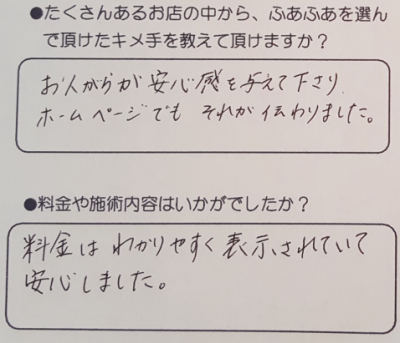 ●たくさんあるお店の中から、ふあふあを選ん
で頂けたキメ手を教えて頂けますか？
お人がらが安心感を与えて下さり
ホームページでも それが伝わりました。
●料金や施術内容はいかがでしたか？
料金はわかりやすく表示されていて
安心しました。